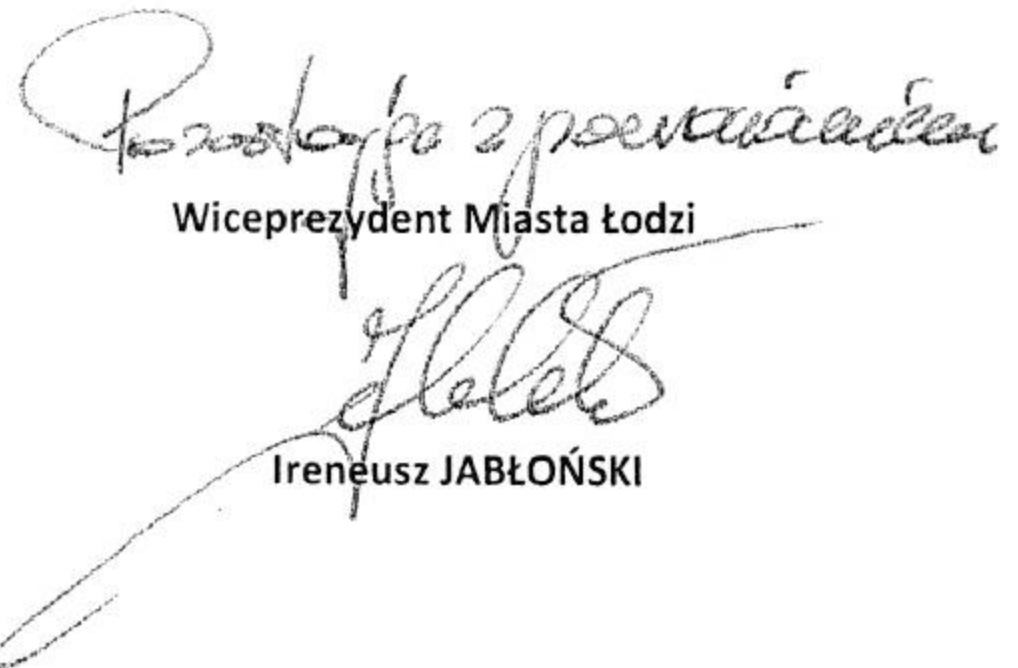 Pozostaję z poważaniem
Wiceprezydent Miasta Łodzi
Ireneusz JABŁOŃSKI